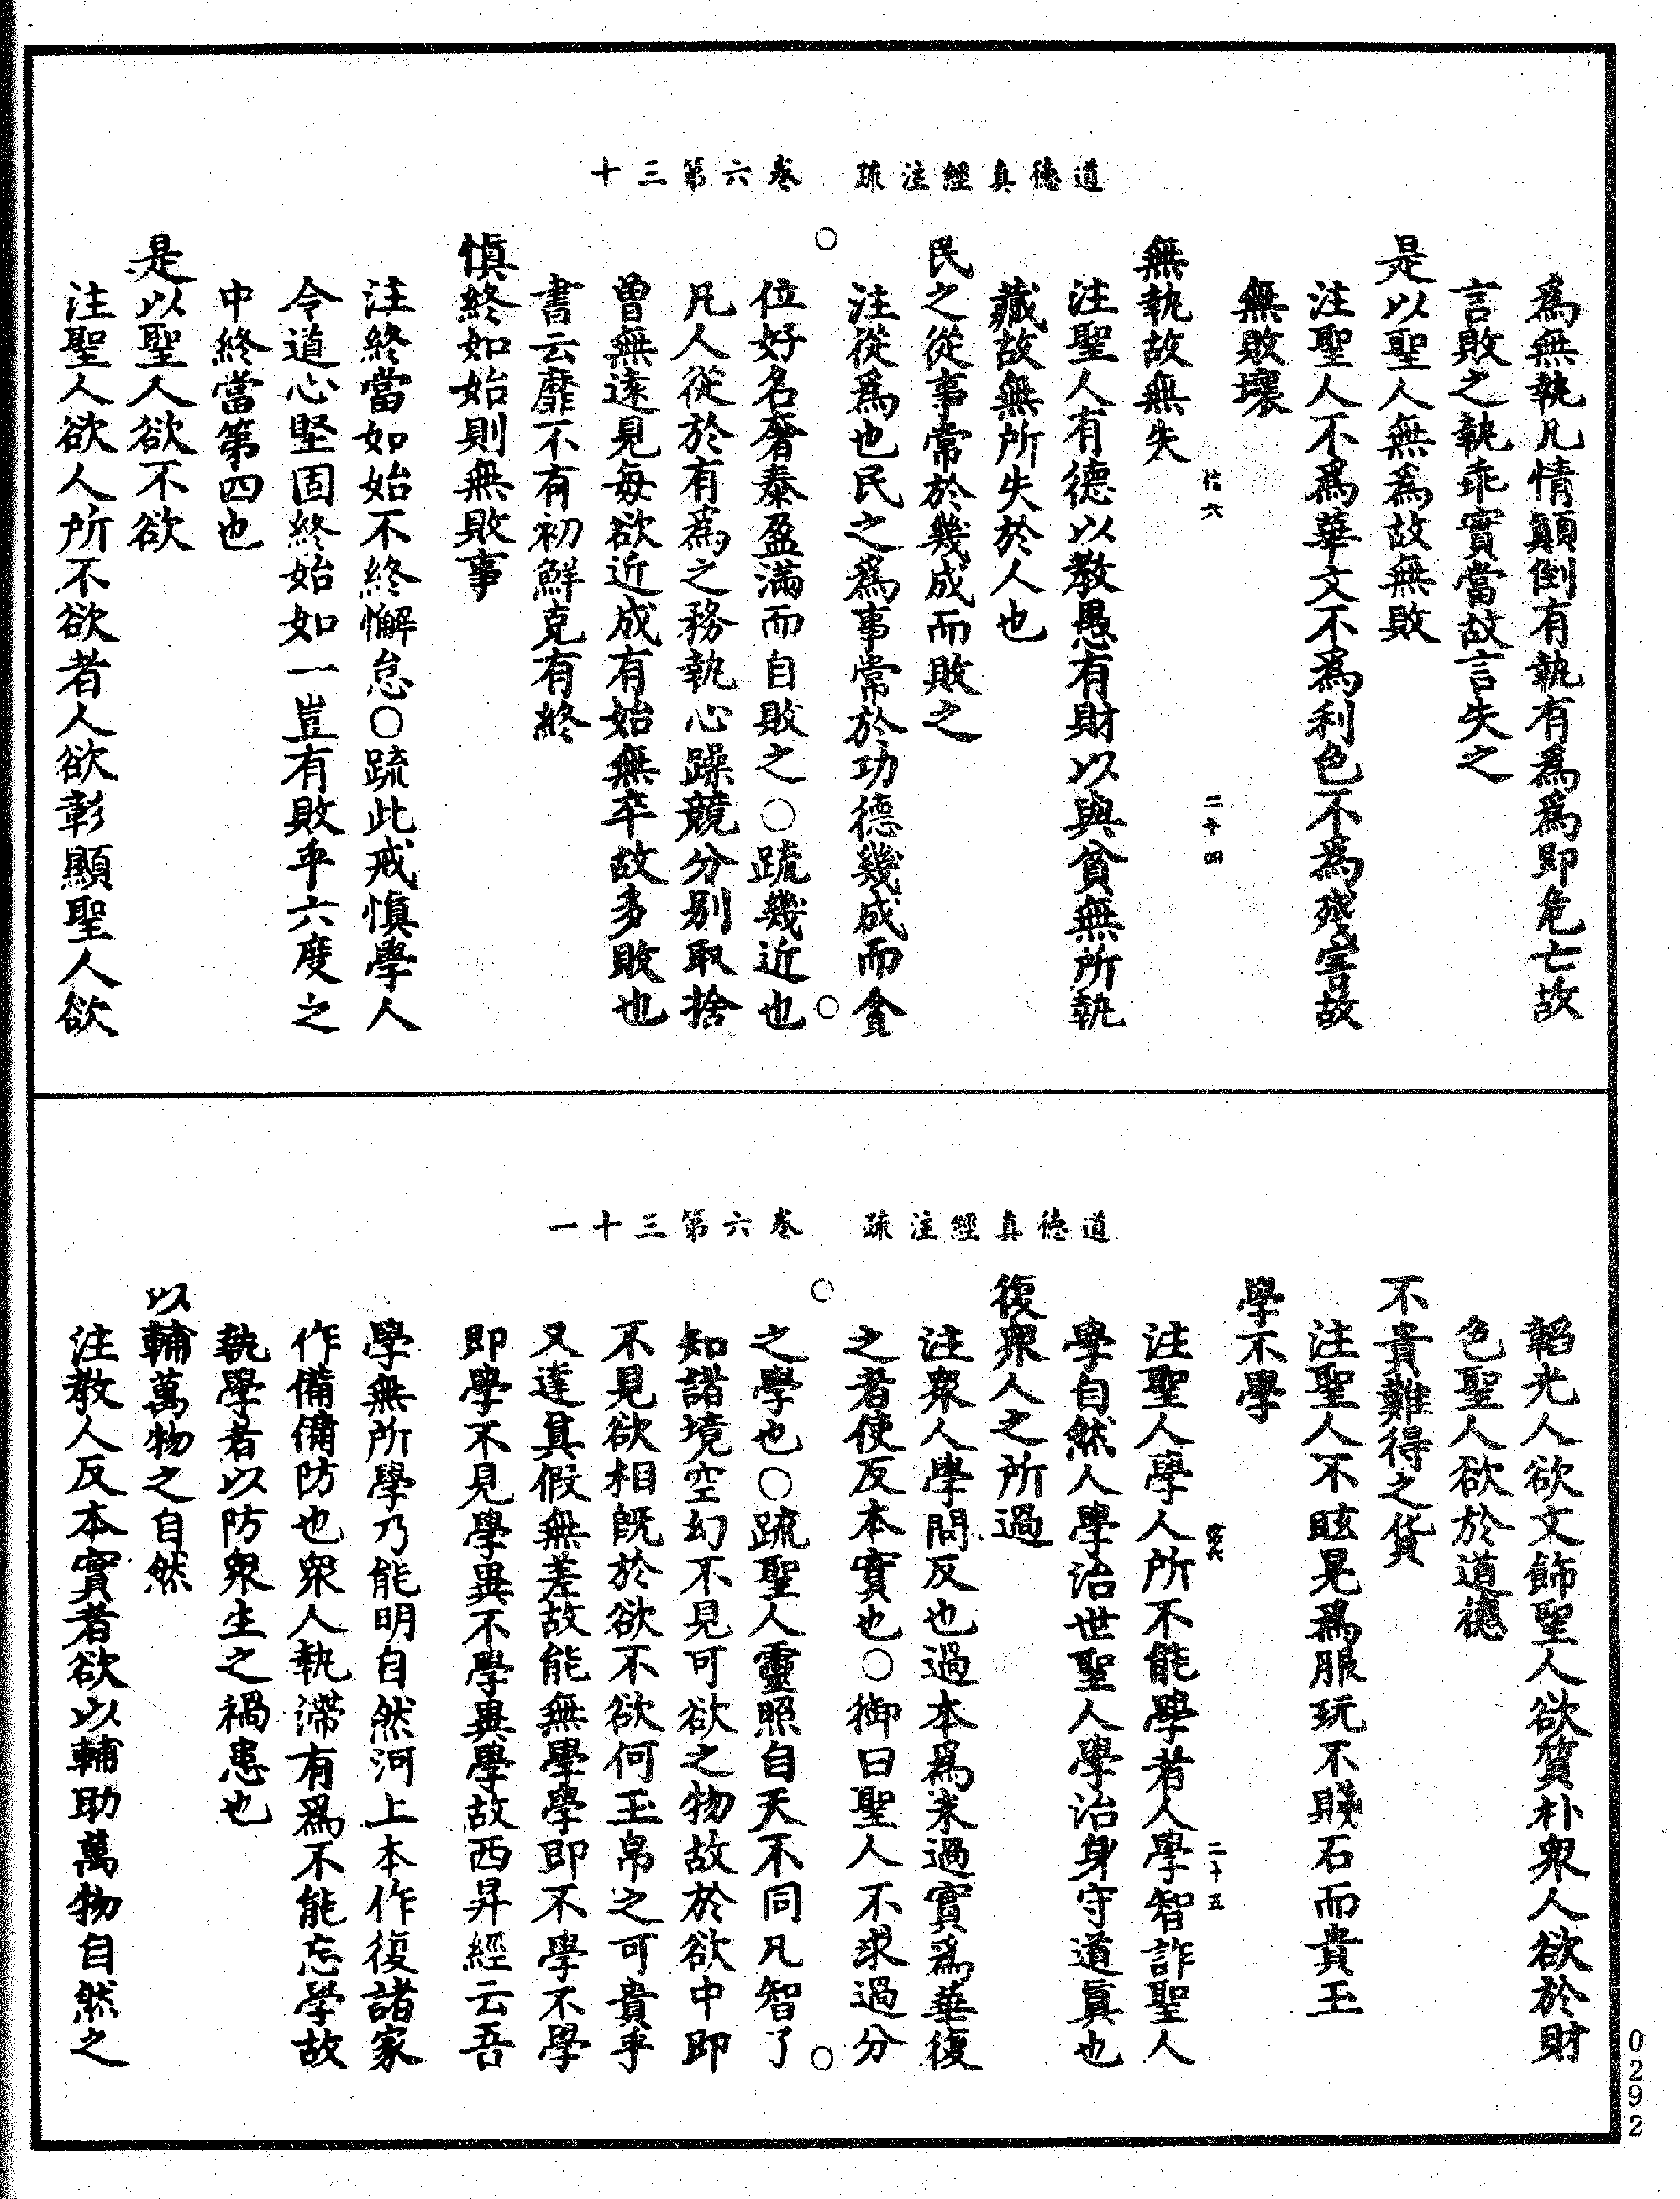 道德真經注疏　卷六第三十
爲無執凡情顛倒有執有爲爲即危亡故
言敗之執乖實當故言失之
是以聖人無爲故無敗
注聖人不爲華文不爲利色不爲殘害故
無敗壞
二十四
無執故無失
注聖人有德以教愚有財以與貧無所執
藏故無所失於人也
民之從事常於幾成而敗之
注從爲也民之爲事常於功德幾成而貪
位好名奢泰盈滿而自敗之○疏幾近也
凡人從於有爲之務執心躁競分别取捨
曾無遠見每欲近成有始無卒故多敗也
書云靡不有初鮮克有終
慎終如始則無敗事
注終當如始不終懈怠○疏此戒慎學人
令道心堅固終始如一豈有敗乎六度之
中終當第四也
是以聖人欲不欲
注聖人欲人所不欲者人欲彰顯聖人欲
道德真經注疏　卷六第三十一
韜光人欲文飾聖人欲質朴衆人欲於財
色聖人欲於道德
不貴難得之貨
注聖人不眩晃爲服玩不賤石而貴玉
學不學
二十五
注聖人學人所不能學者人學智詐聖人
學自然人學治世聖人學治身守道真也
復衆人之所過
注衆人學問反也過本爲末過實爲華復
之者使反本實也○御曰聖人不求過分
之學也○疏聖人靈照自天不同凡智了
知諸境空幻不見可欲之物故於欲中即
不見欲相旣於欲不欲何玉帛之可貴乎
又達真假無差故能無學學即不學不學
即學不見學異不學異學故西昇經云吾
學無所學乃能明自然河上本作復諸家
作備備防也衆人執滯有爲不能忘學故
執學者以防衆生之禍患也
以輔萬物之自然
注教人反本實者欲以輔助萬物自然之
0292